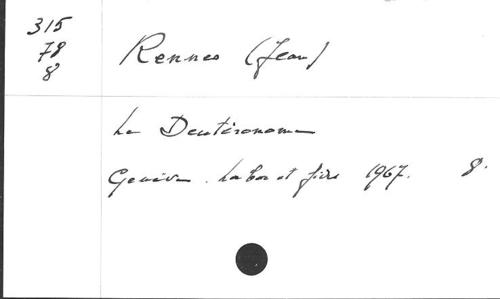 315
78
8
Rennes (Jean)
Le Deutéronome
Genève. Labor et fides 1967. 8.